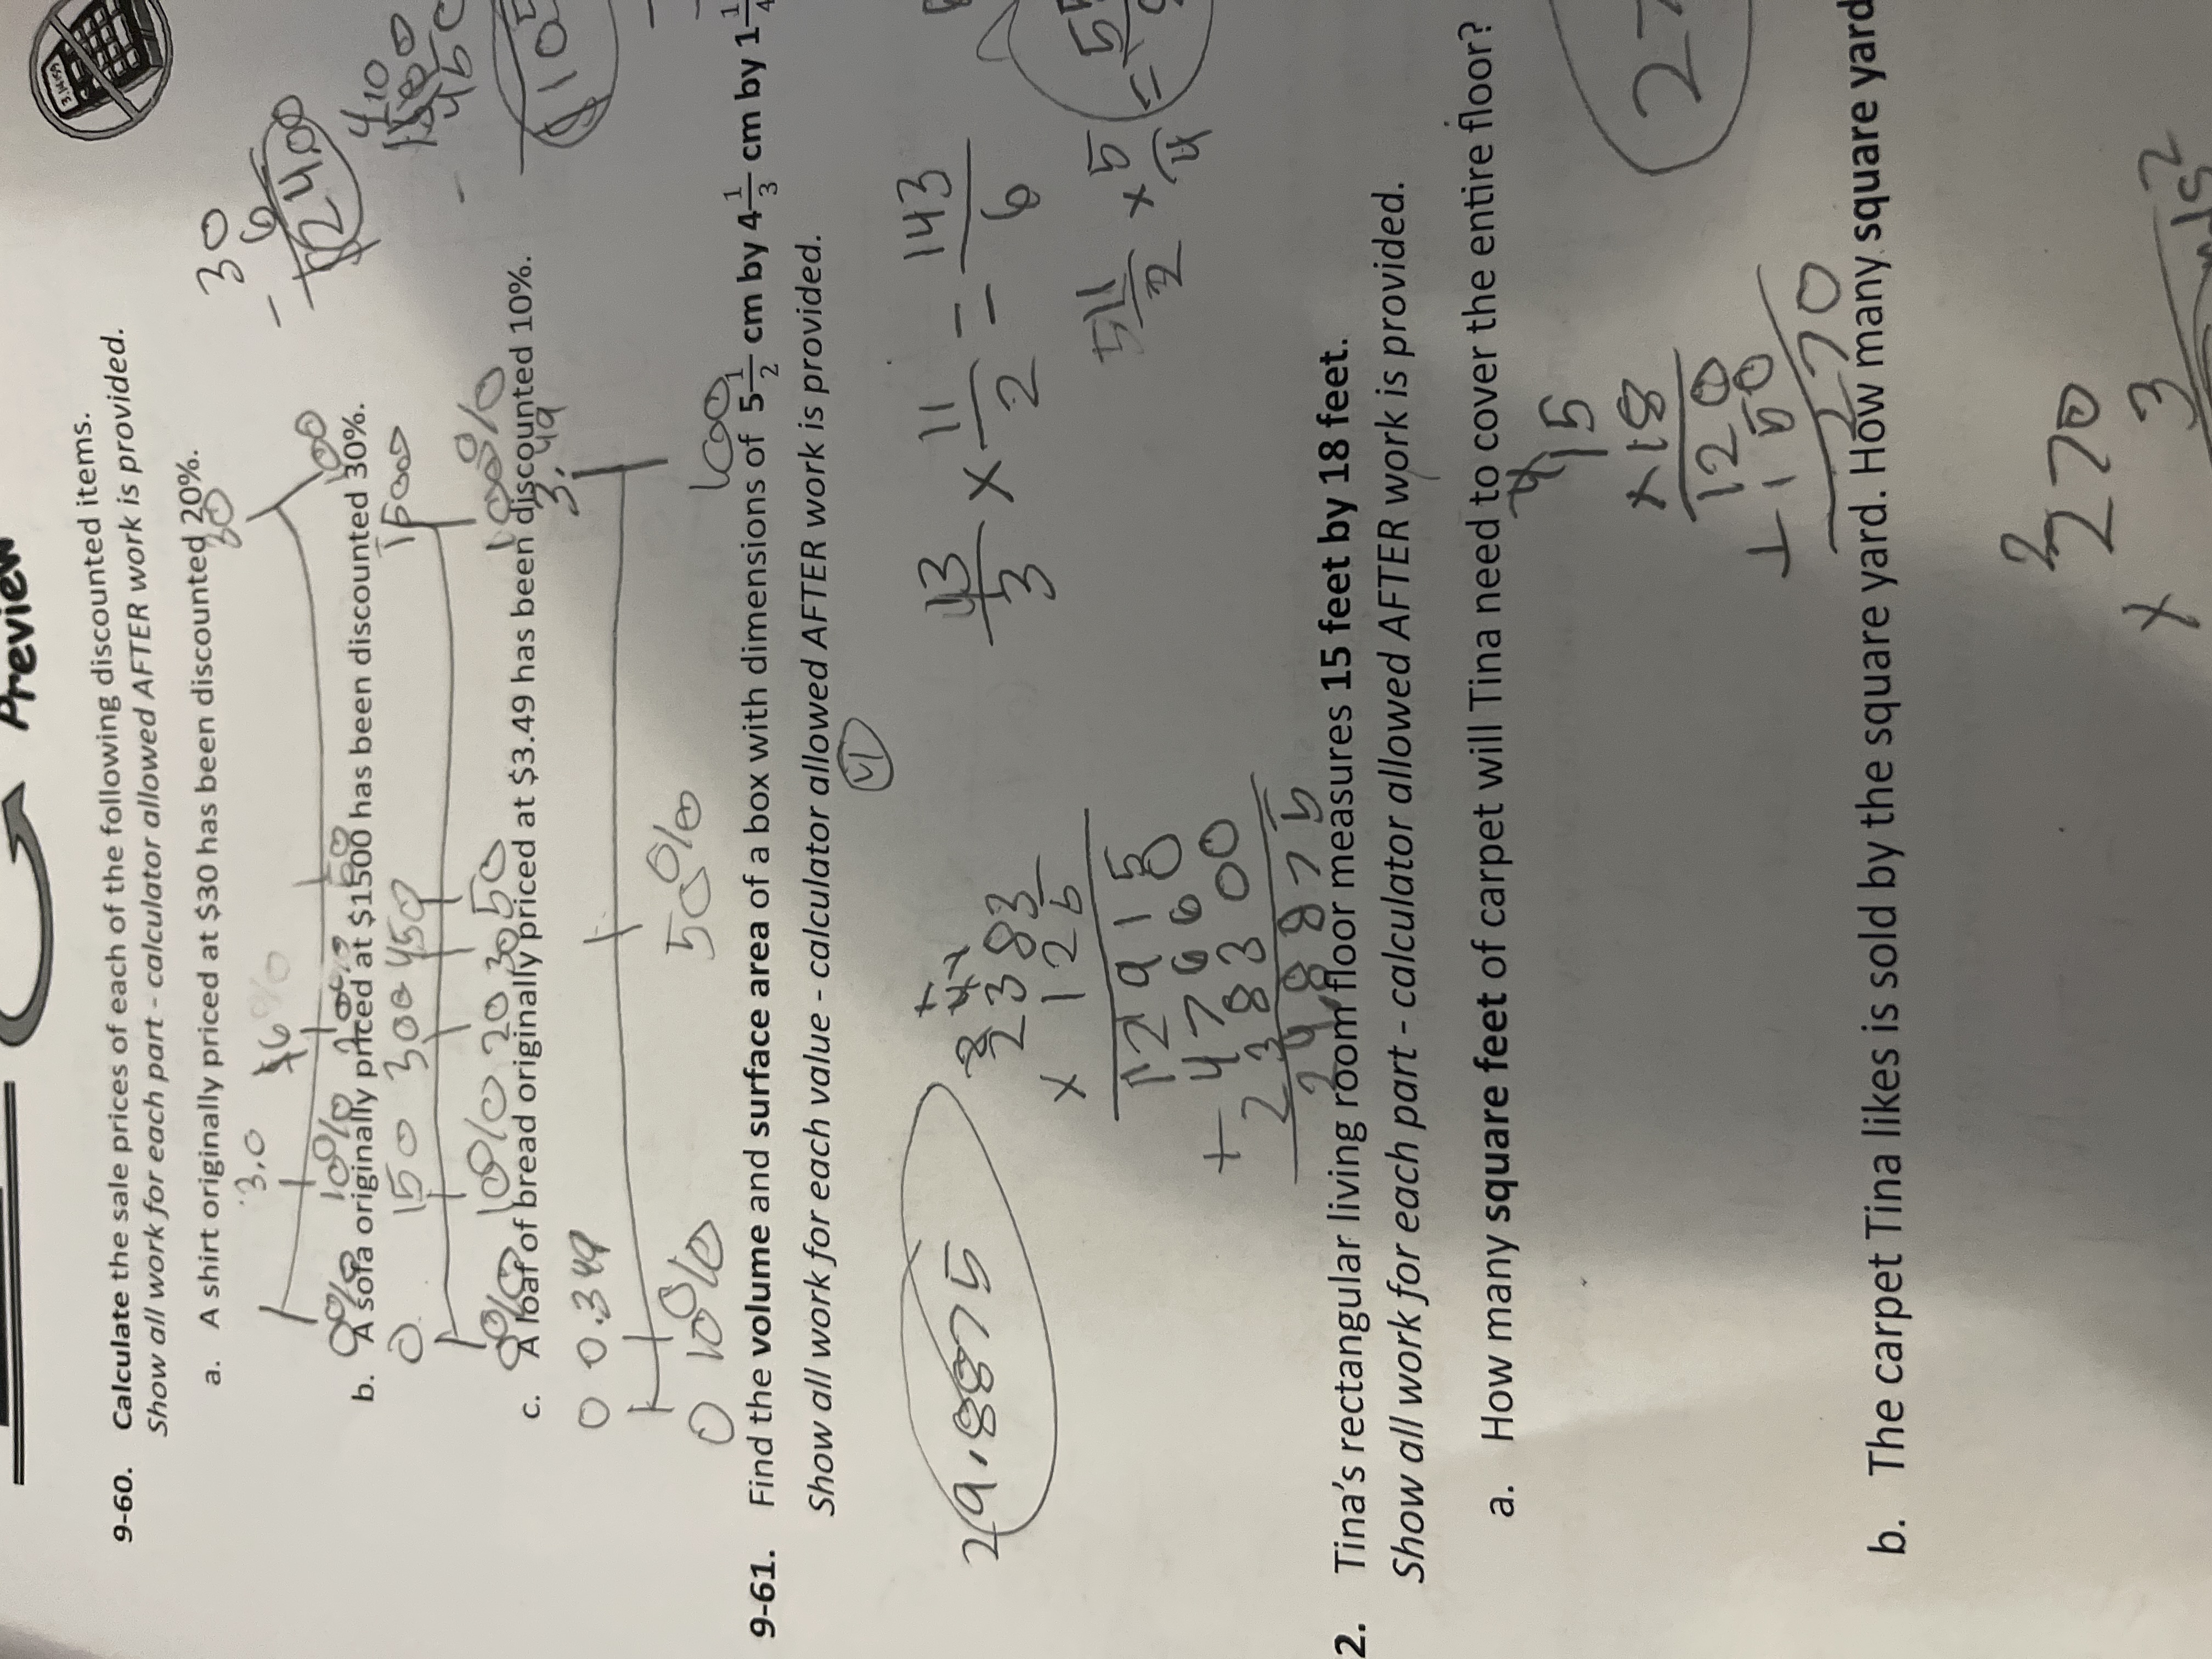 Preview
3.14159
9-60. Calculate the sale prices of each of the following discounted items.
Show all work for each part - calculator allowed AFTER work is provided.
a. A shirt originally priced at $30 has been discounted 20%.
30
30
- 6
24.00
3.0
6
10%
100
b. A sofa originally priced at $1500 has been discounted 30%.
0 150 300 450
1500
0% 10% 20 30 50
100%
c. A loaf of bread originally priced at $3.49 has been discounted 10%.
0 0.349
3.49
0 10%
50%
100
9-61. Find the volume and surface area of a box with dimensions of 5 1/2 cm by 4 1/3 cm by 1 1/4
Show all work for each value - calculator allowed AFTER work is provided.
29.8875
2383
x 125
11915
47660
+ 238300
13/3 x 11/2 = 143/6
11/2 x 5/4 = 55
2. Tina's rectangular living room floor measures 15 feet by 18 feet.
Show all work for each part - calculator allowed AFTER work is provided.
a. How many square feet of carpet will Tina need to cover the entire floor?
15
x 18
120
+ 150
270
b. The carpet Tina likes is sold by the square yard. How many square yard
2
270
x 3